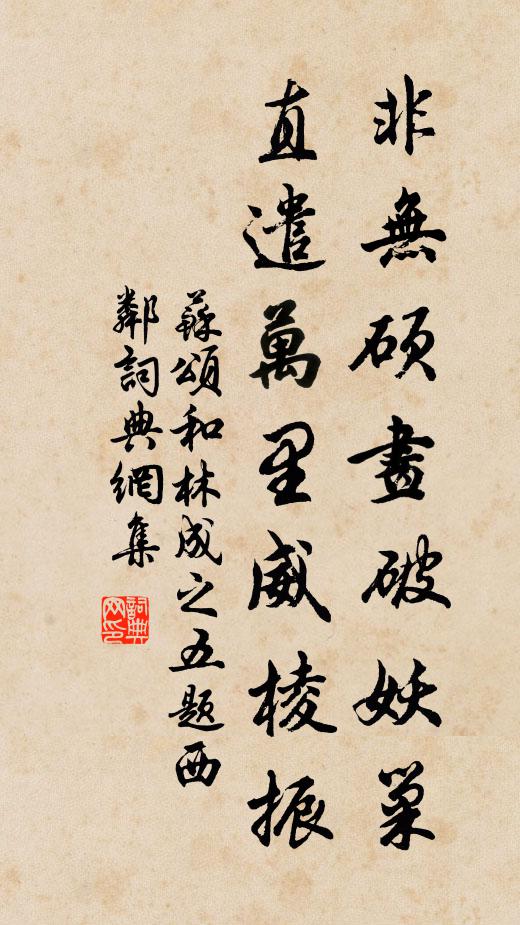 非無碩畫破妖巢
直遣萬里威棱振
蘇頌和林成之五題西
鄰詞典網集
詞典网印